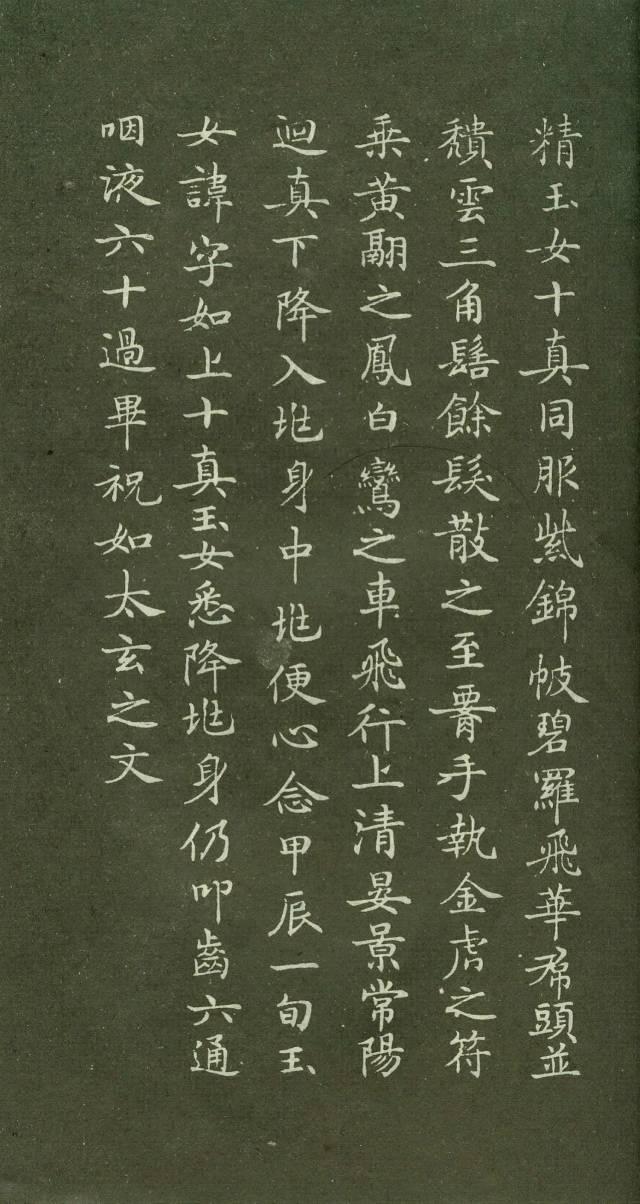 精玉女十真同服紫錦帔碧羅飛華帬頭並
頹雲三角髻餘髮散之至署手執金虎之符
乘黃翮之鳳白鸞之車飛行上清晏景常陽
迴真下降入𡉏身中𡉏便心念甲辰一旬玉
女諱字如上十真玉女悉降𡉏身仍叩齒六通
咽液六十過畢祝如太玄之文